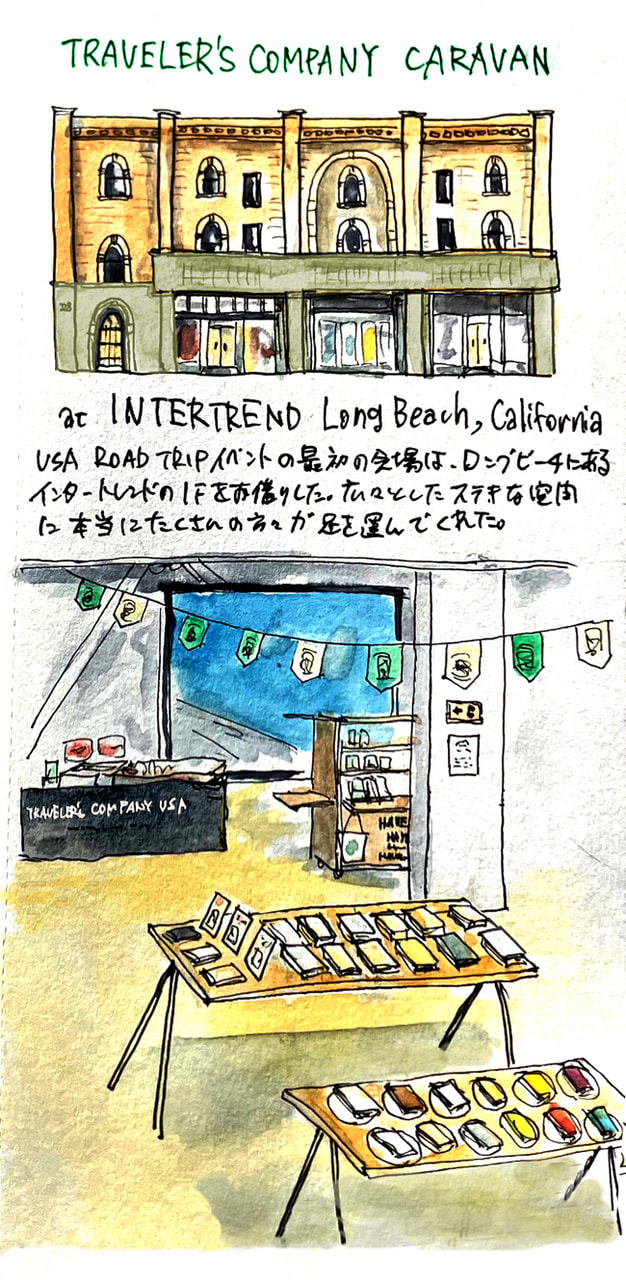 TRAVELER'S COMPANY CARAVAN
at INTERTREND Long Beach, California
USA ROAD TRIP イベントの最初の会場は、ロングビーチにある
インタートレンドの1Fをお借りした。広々としたステキな空間
に本当にたくさんの方々が足を運んでくれた。
TRAVELER'S COMPANY USA
HAVE